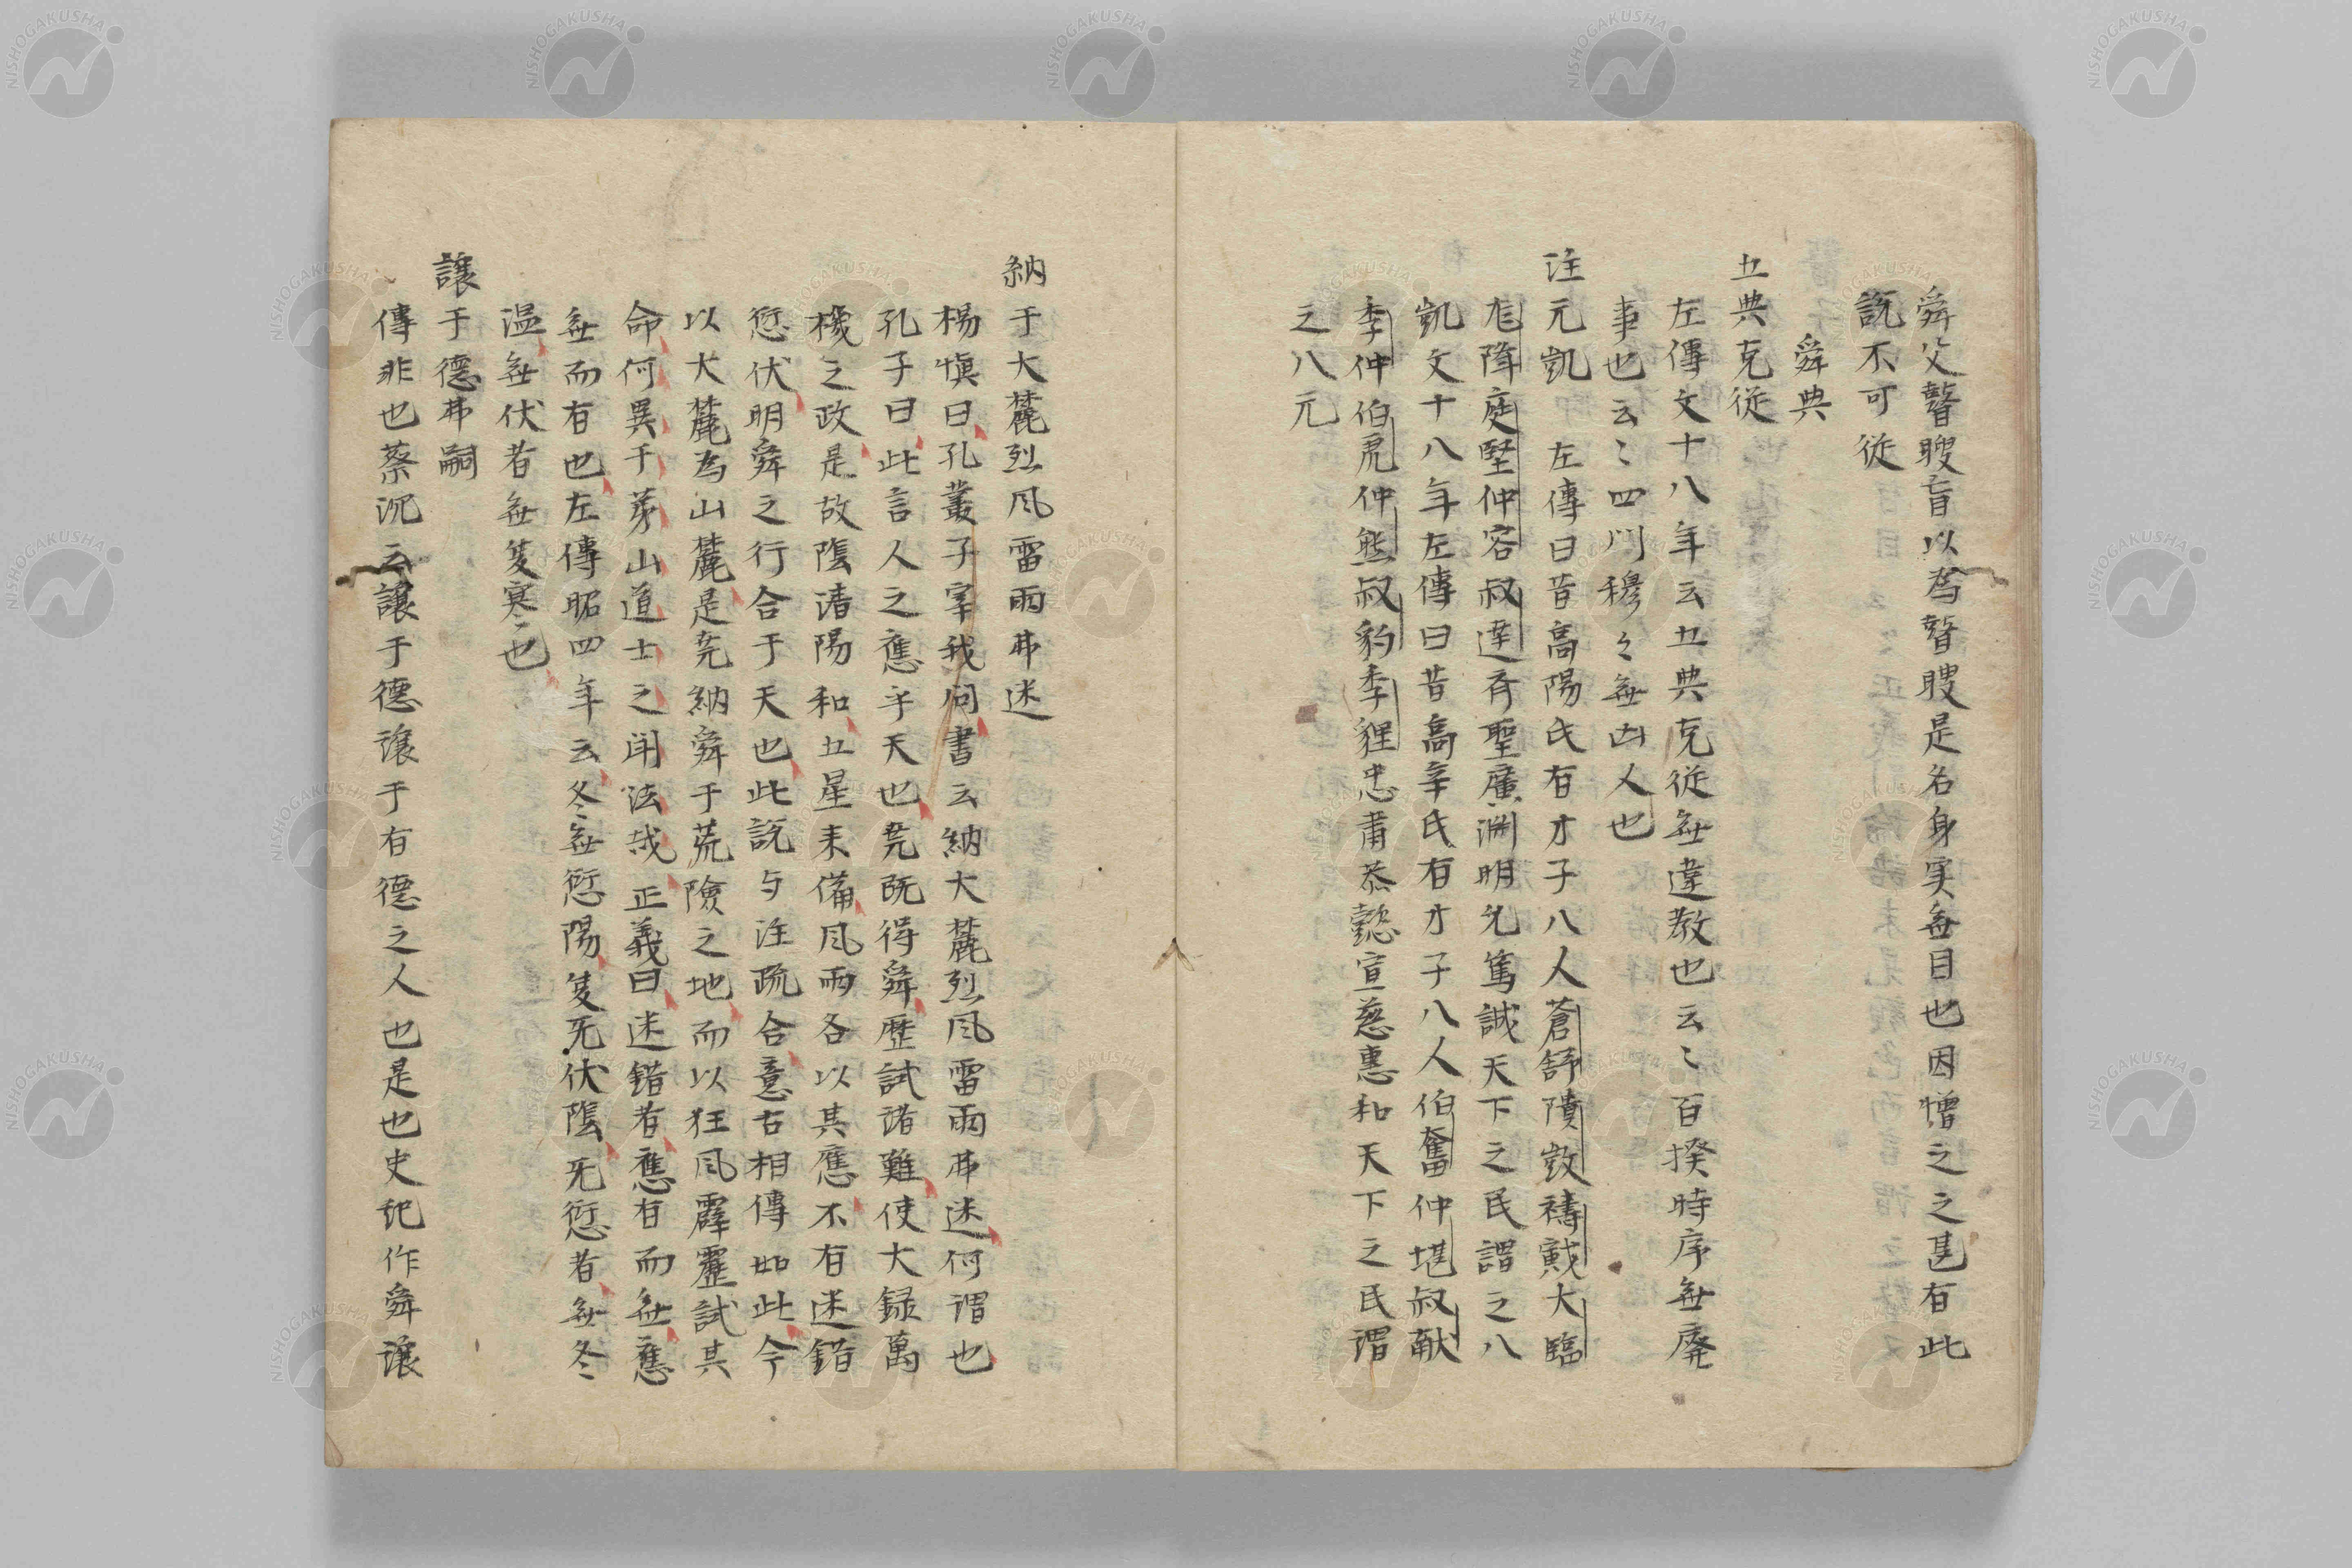 舜父瞽瞍盲以為瞽瞍是名身実無目也因憎之之甚有此
説不可從
舜典
五典克從
左傳文十八年云五典克從無違教也云〻百揆時序無廃
事也云〻四門穆々無凶人也
注元凱　左傳曰昔高陽氏有才子八人蒼舒隤敳檮戭大臨
尨降庭堅仲容叔達斉聖廣淵明允篤誠天下之民謂之八
凱文十八年左傳曰昔高辛氏有才子八人伯奮仲堪叔献
季仲伯虎仲熊叔豹季貍忠肅恭懿宣慈惠和天下之民謂
之八元
納于大麓烈風雷雨弗迷
楊慎曰孔叢子宰我問書云納大麓烈風雷雨弗迷何謂也
孔子曰此言人之應乎天也尭既得舜歴試諸難使大録萬
機之政是故陰清陽和五星来備風雨各以其應不有迷錯
愆伏明舜之行合于天也此説与注疏合意古相傳如此今
以大麓為山麓是尭納舜于荒險之地而以狂風霹靂試其
命何異于茅山道士之闘法哉　正義曰迷錯者應有而無應
無而有也左傳昭四年云冬無愆陽夏无伏陰无愆者無冬
温無伏者無夏寒也
譲于德弗嗣
傳非也蔡沉云譲于德譲于有德之人也是也史記作舜譲